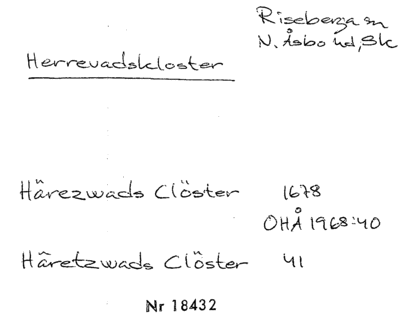 Riseberga sn
N. Åsbo hd, Sk
Herrevadskloster
Härezwads Clöster 1678
OHÅ 1968:40
Häretzwads Clöster 41
Nr 18432